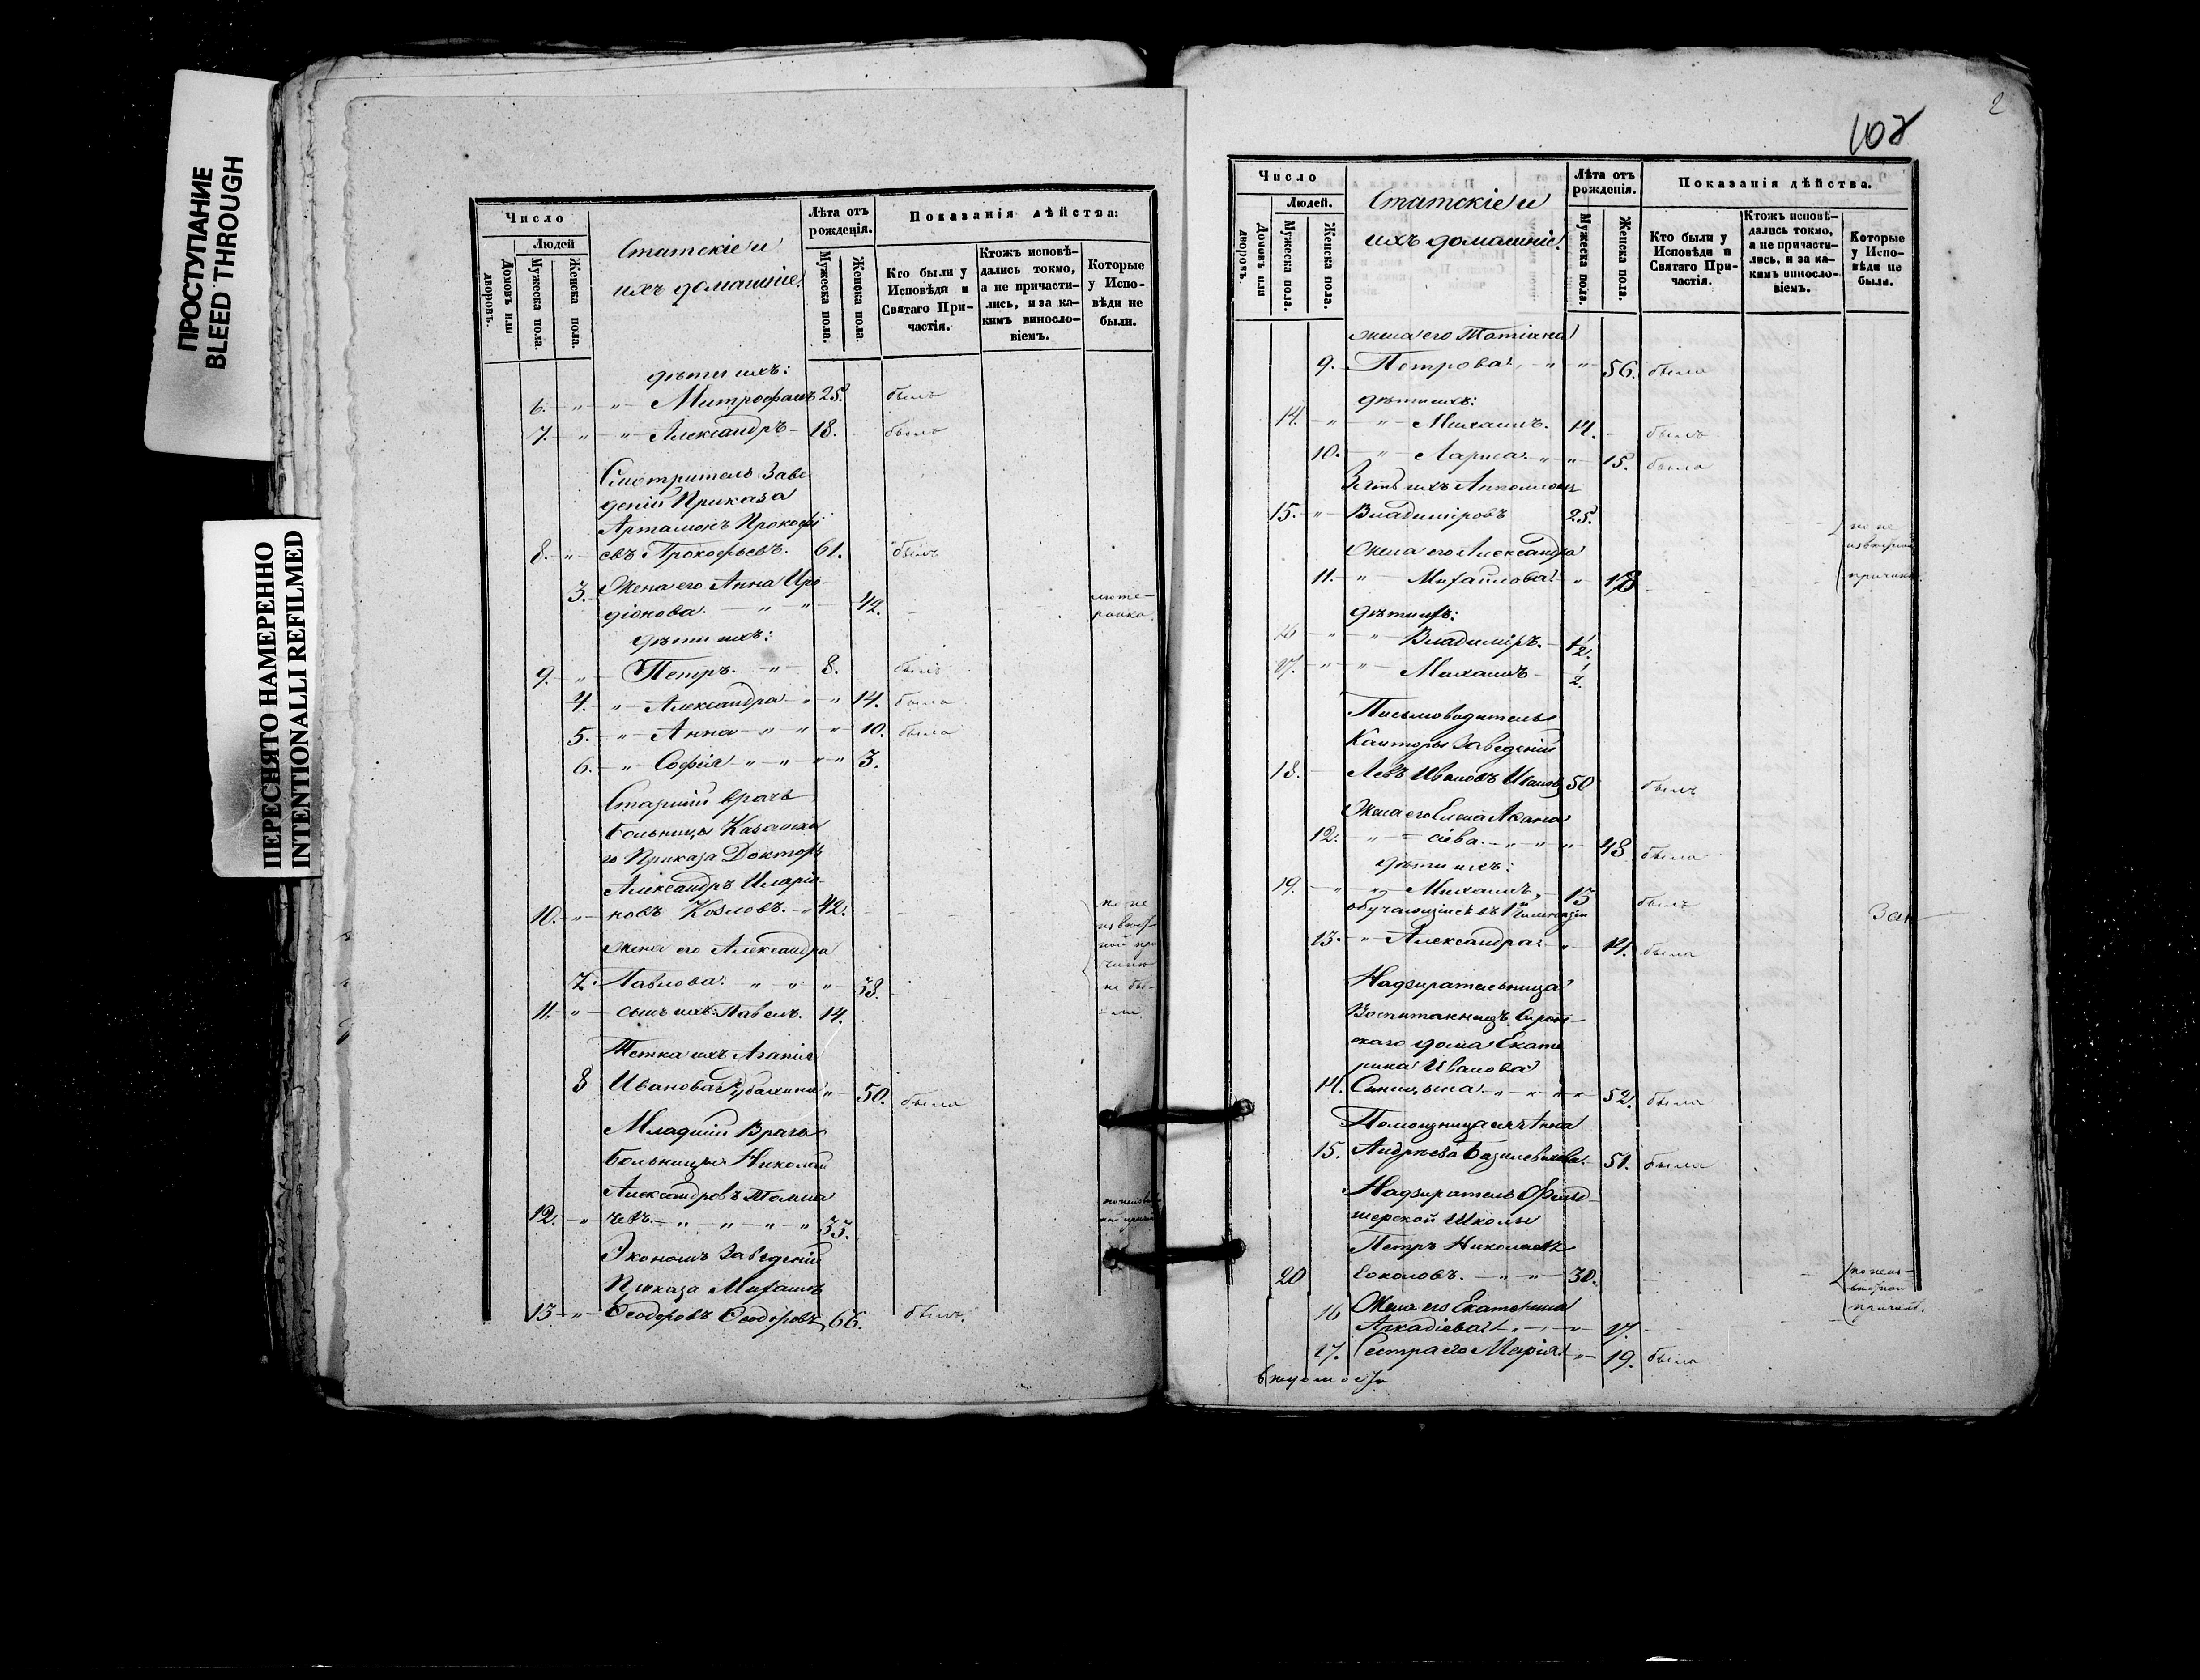 ПРОСТУПАНИЕ
BLEED THROUGH
ПЕРЕСНЯТО НАМЕРЕННО
INTENTIONALLI REFILMED
Число
Людей
Домовъ или дворовъ.
Мужеска пола.
Женска пола.
Статскіе и
ихъ домашніе
Лѣта отъ рожденія.
Мужеска пола.
Женска пола.
Показанія дѣйства:
Кто были у Исповѣди и Святаго Причастія.
Ктожъ исповѣ-
дались токмо,
а не причасти-
лись, и за ка-
кимъ винсло-
віемъ.
Которые
у Испо-
вѣди не
были.
дѣти ихъ:
6. " " Митрофанъ 25. былъ
7. " " Александръ 18. былъ
Смотритель Заве
деній Приказа
Артамонъ Прокофі
8. " евъ Прокофьевъ. 61. былъ
Жена его Анна Иро
3. діонова. " " 42. люте-
ранка.
дѣти ихъ:
9. " Петръ. " 8. былъ
4. " Александра " " 14. была
5. " Анна " " " 10. была
6. " Софія " " " " 3.
Старшій врачъ
больницы Казанска
го Приказа Докторъ
Александръ Иларіо-
10. " новъ Козловъ. " 42. по не
извѣст-
жена его Александра
ной при
чинѣ
7. Павлова. " " " 38. не бы-
11. " сынъ ихъ Павелъ. 14. ли
Тетка ихъ Агапія
8 Иванова " 50. была
Младшій Врачъ
больницы Николай
Александровъ Толма
12. " чевъ. " " " " 33.
Экономъ Заведеній
Приказа Михаилъ
13 " Ѳеодоровъ Ѳеодоровъ 66. былъ.
2
108
Число
Людей.
Домовъ или дворовъ.
Мужеска пола.
Женска пола.
Статскіе и
ихъ домашніе
Лѣта отъ рожденія.
Мужеска пола.
Женска пола.
Показанія дѣйства.
Кто были у Исповѣди и Святаго Причастія.
Ктожъ исповѣ-
дались токмо,
а не причасти-
лись, и за ка-
кимъ винсло-
віемъ.
Которые
у Испо-
вѣди не
были.
жена его Татіана
9. Петрова. " " 56. была
дѣти ихъ:
14. " " Михаилъ. 14. былъ
10. " Лариса " " 15. была
Зять ихъ
15. " Владиміровъ 25. по не
извѣстной
жена его Александра
11. " Михайлова " 18 причинѣ.
дѣти ихъ:
16 " " Владиміръ. 1½.
17. " " Михаилъ ½.
Письмоводитель
Канторы Заведеній
18. Левъ Ивановъ Ивановъ 50 былъ
Жена его Елена Аѳана
12. " = сіева. " " " 48 была
дѣти ихъ:
19. " " Михаилъ, 15 былъ
обучающійся въ 1й Гимназіи
13. " Александра " 14. была
Надзирательница
Воспитанницъ Сирот-
скаго дома Екате
рина Иванова
14. Синицына. " " " " 52. была
Помощница ея Анна
15. Андреева Базилевичева. 51. была
Надзиратель Фельд-
шерской Школы
Петръ Николаевъ
20 Соколовъ. " " 30. по неиз-
вѣстной
16 Жена его Екатерина причинѣ.
Аркадіева " 27.
17. Сестра его Марія " 19. была